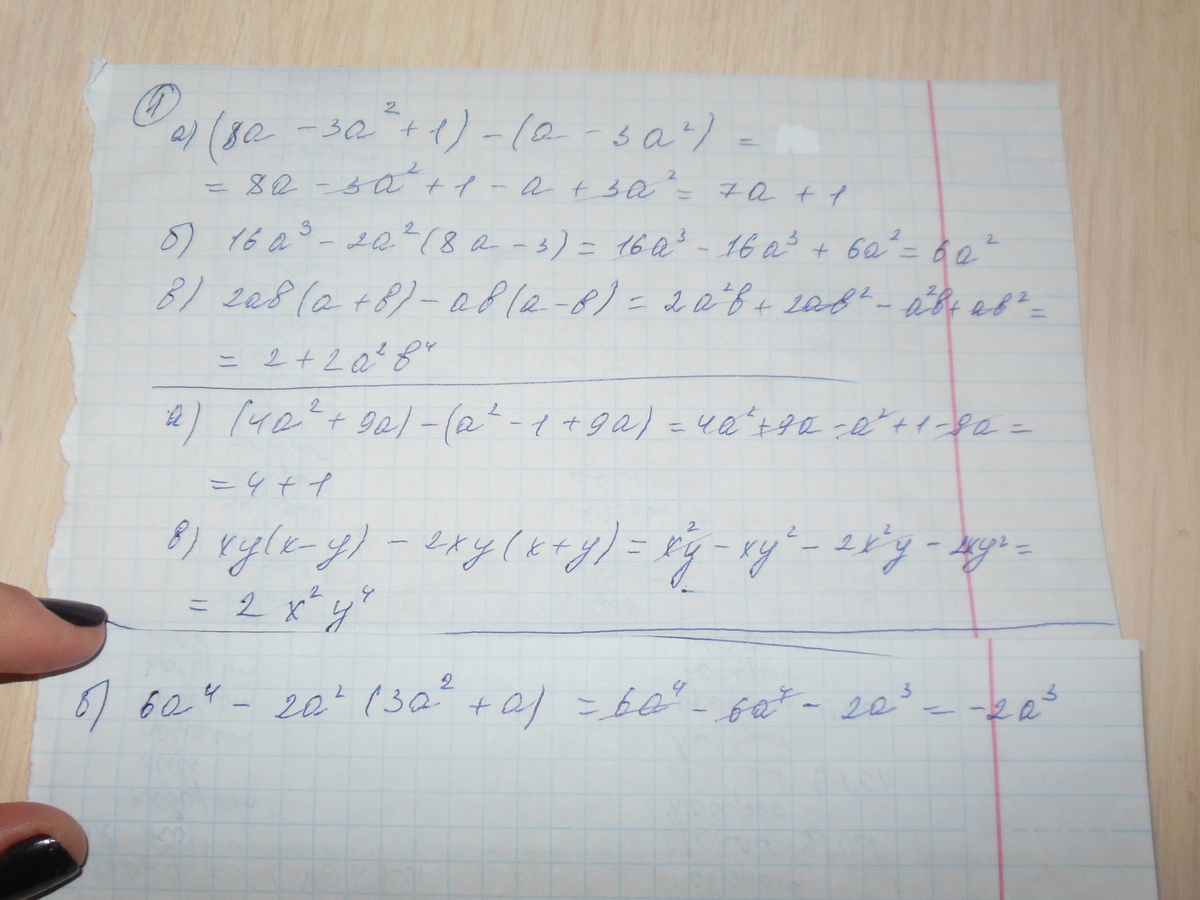 1
а) (8a - 3a² + 1) - (a - 3a²) =
= 8a - 3a² + 1 - a + 3a² = 7a + 1
б) 16a³ - 2a² (8a - 3) = 16a³ - 16a³ + 6a² = 6a²
в) 2ав (а + в) - ав (а - в) = 2а²в + 2ав² - а²в + ав² =
= 2 + 2а²в⁴
а) (4a² + 9a) - (a² - 1 + 9a) = 4a² + 9a - a² + 1 - 9a =
= 4 + 1
в) xy (x - y) - 2xy (x + y) = x²y - xy² - 2x²y - 2xy² =
= 2 x² y⁴
б) 6a⁴ - 2a² (3a² + a) = 6a⁴ - 6a⁴ - 2a³ = -2a³